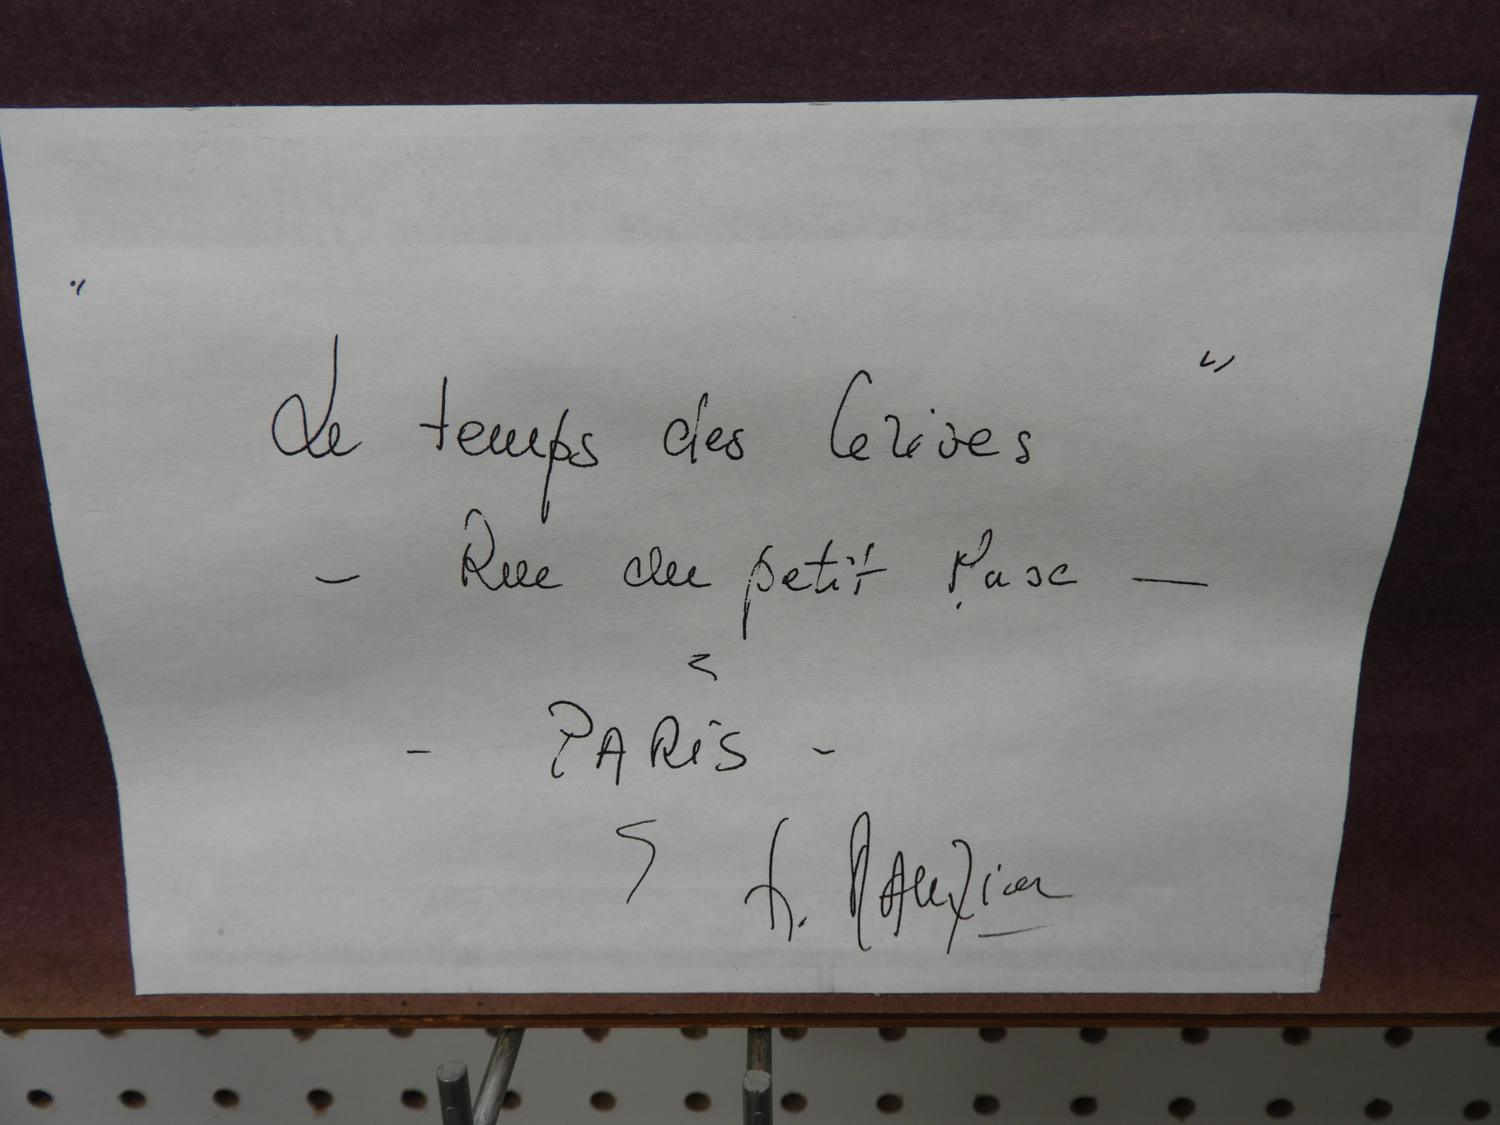 " Le temps des Cerises "
- Rue du petit Musc -
- PARIS -